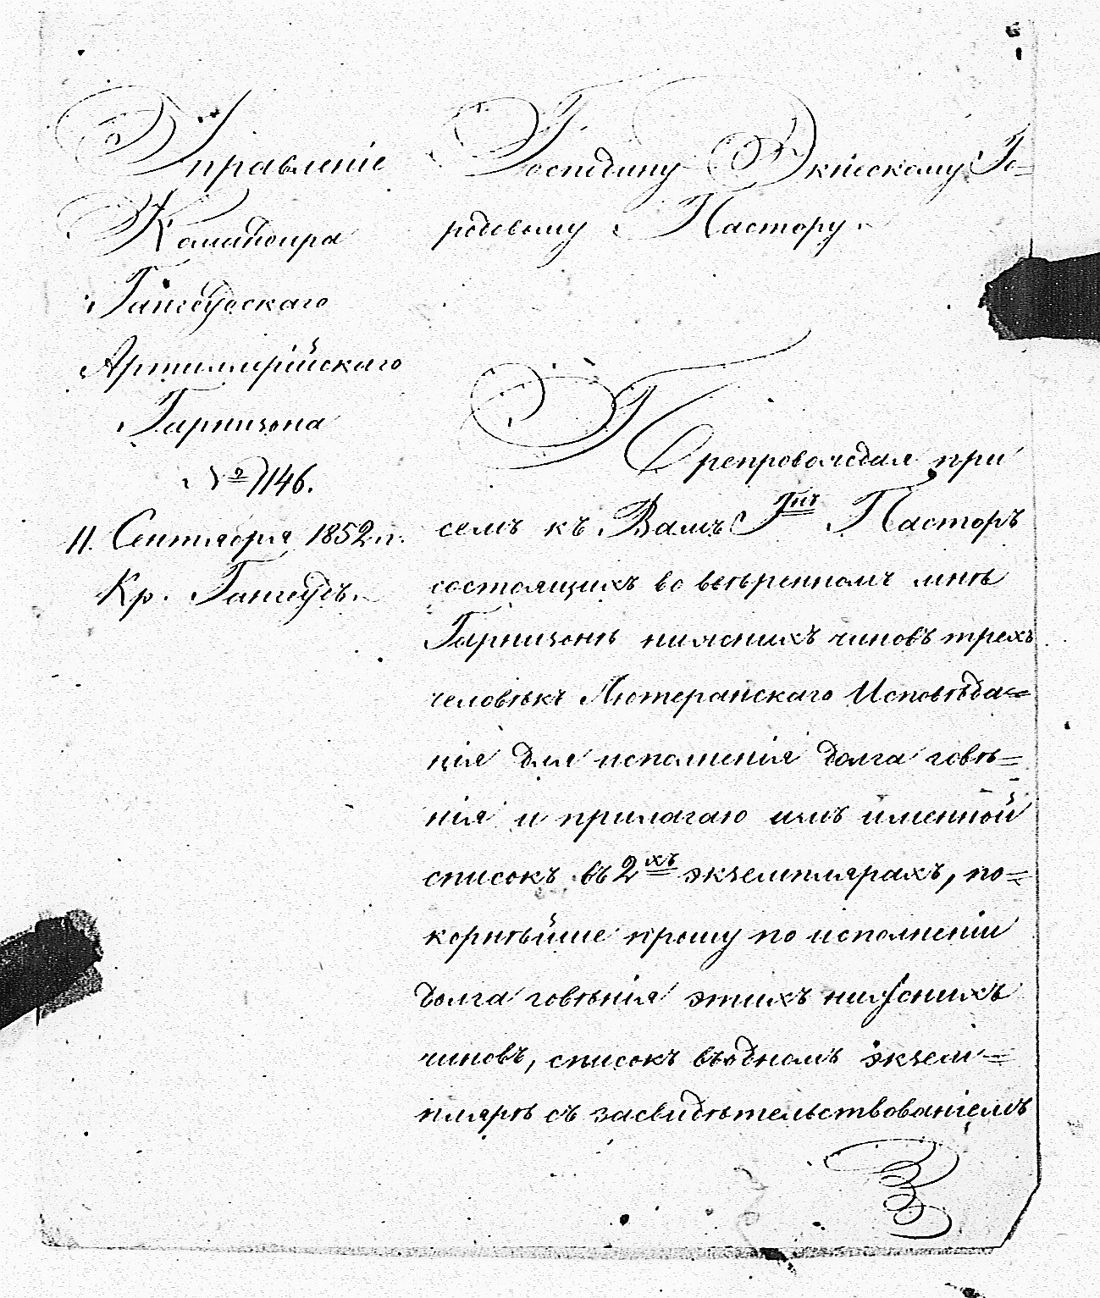 Управленіе
Командира
Гангеудскаго
Артиллерійскаго
Гарнизона
№ 1146.
11. Сентября 1852 г.
Кр. Гангеудъ.
Господину Экнескому Го-
родовому Пастору.
Препровождая при
семъ къ Вамъ Гнъ Пасторъ
состоящихъ во ввѣренномъ мнѣ
Гарнизонѣ нижнихъ чиновъ трехъ
человѣкъ Лютеранскаго Исповѣда=
нія для исполненія долга говѣ=
нія и прилагаю имъ именной
списокъ въ 2хъ экземплярахъ, по=
корнѣйше прошу по исполненіи
долга говѣнія этихъ нижнихъ
чиновъ, списокъ въ одномъ экзем=
плярѣ съ засвидѣтельствованіемъ